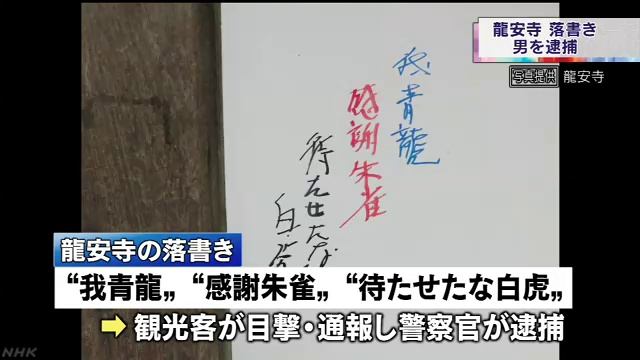 龍安寺 落書き
男を逮捕
写真提供 龍安寺
我青龍
感謝朱雀
待たせたな
白虎
龍安寺の落書き
“我青龍„ “感謝朱雀„ “待たせたな白虎„
➡ 観光客が目撃・通報し警察官が逮捕
NHK